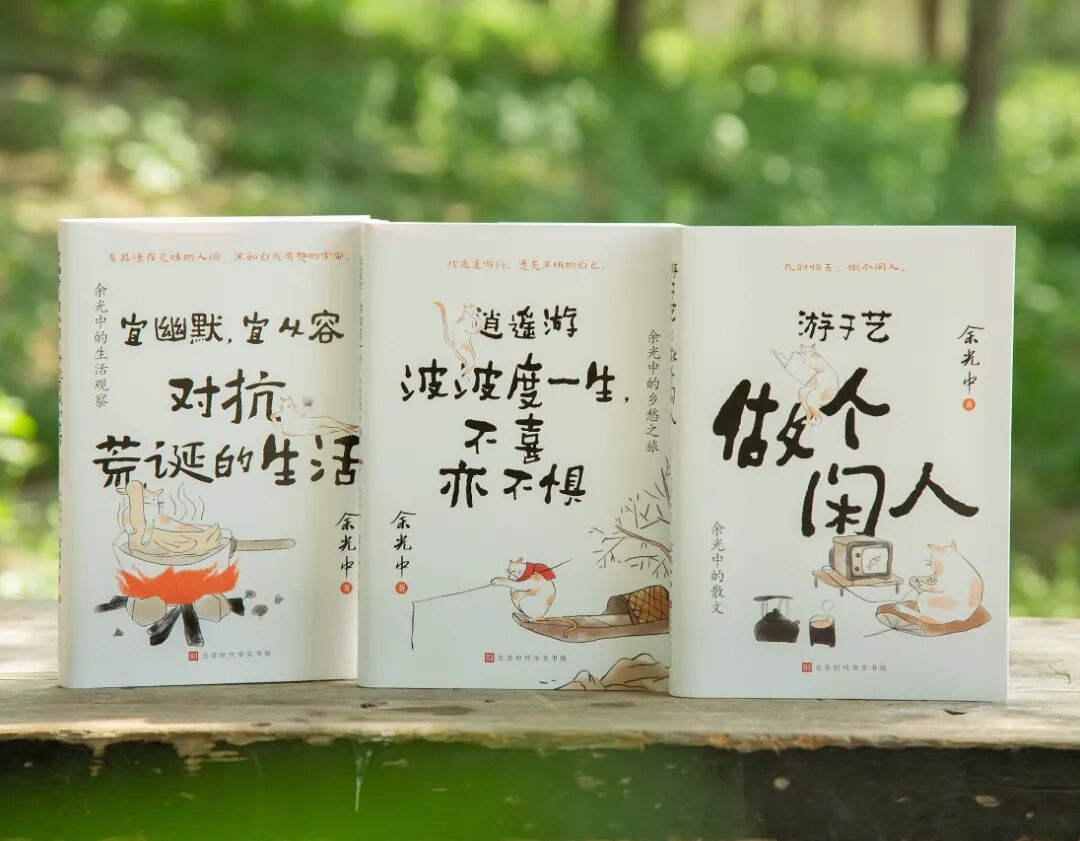 与其活在乏味的人间，不如自成有趣的宇宙。
余光中的生活观察
宜幽默，宜从容
对抗
荒诞的生活
余光中 著
北京时代华文书局
逍遥游
波波度一生，
不喜
亦不惧
余光中的乡愁之旅
余光中 著
北京时代华文书局
几时归去，做个闲人。
游于艺
做个
闲人
余光中 著
余光中的散文
北京时代华文书局